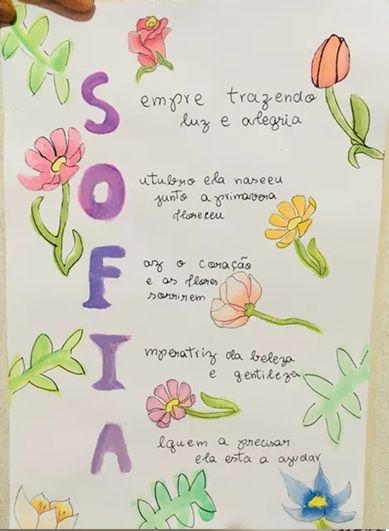 S empre trazendo
luz e alegria
O utubro ela nasceu
junto a primavera
floresceu
F az o coração
e as flores
sorrirem
I mperatriz da beleza
e gentileza
A lguem a precisar
ela esta a ajudar